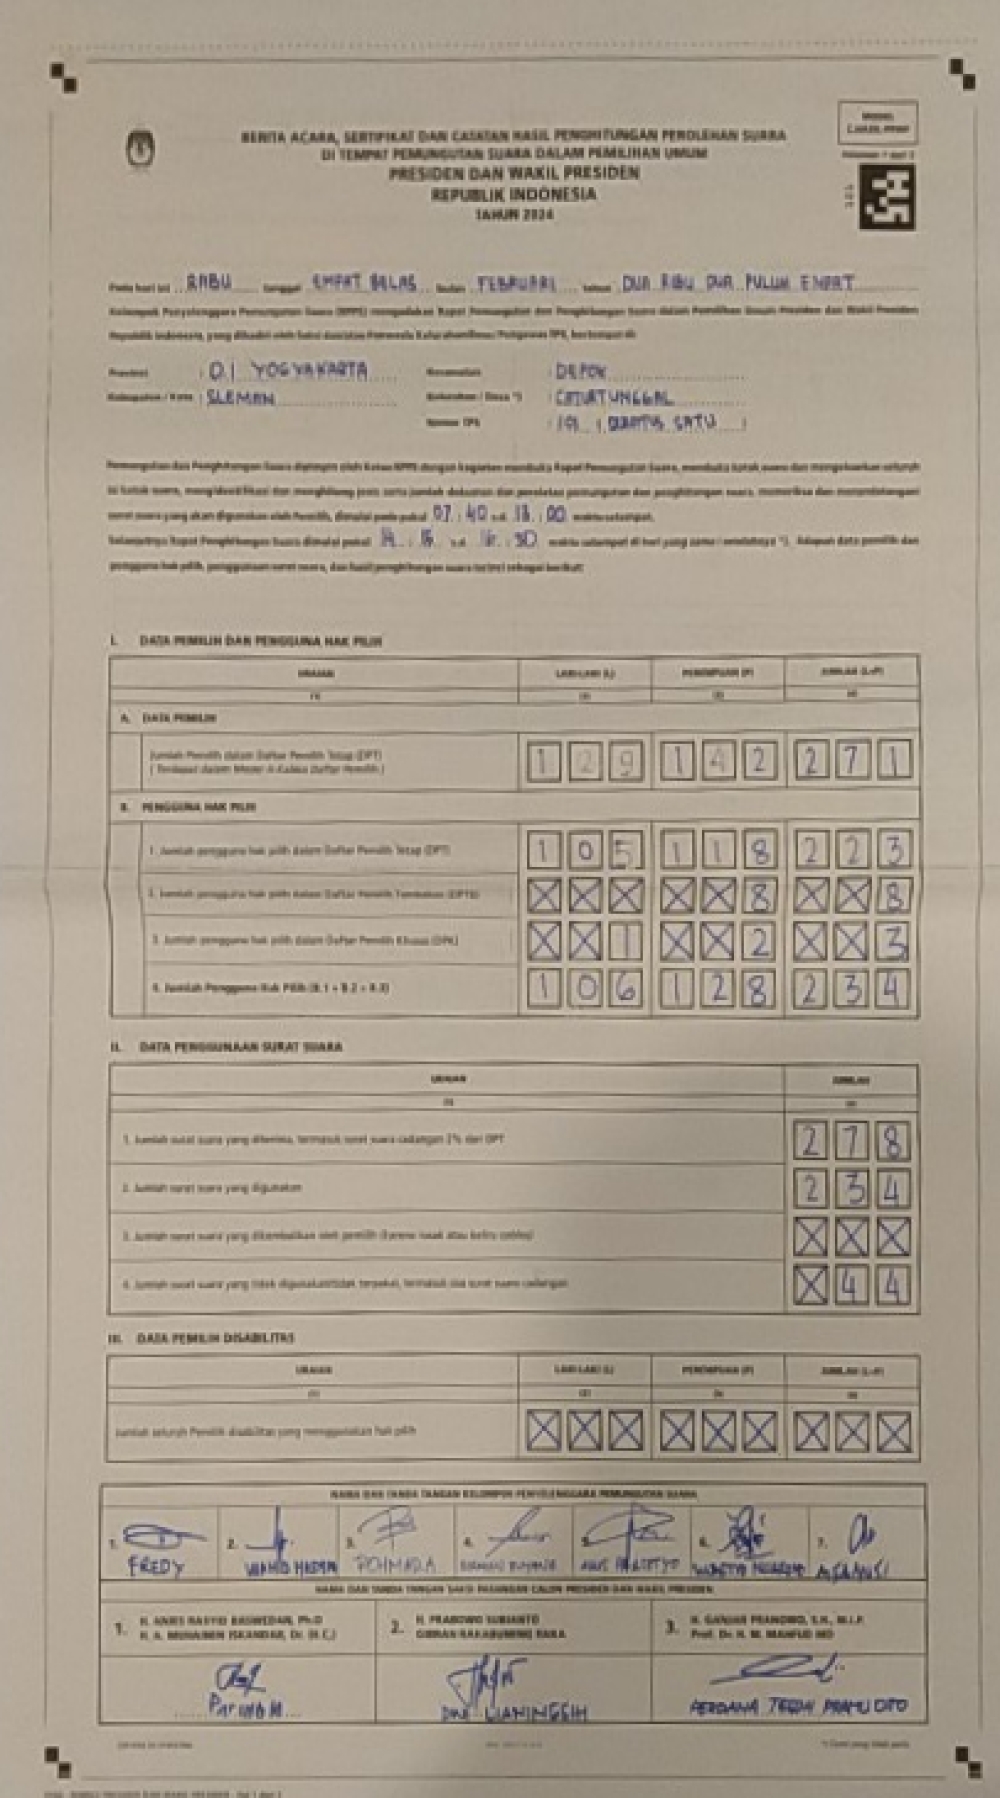 MODEL
C.HASIL-PPWP
Halaman 1 dari 3
BERITA ACARA, SERTIFIKAT DAN CATATAN HASIL PENGHITUNGAN PEROLEHAN SUARA
DI TEMPAT PEMUNGUTAN SUARA DALAM PEMILIHAN UMUM
PRESIDEN DAN WAKIL PRESIDEN
REPUBLIK INDONESIA
TAHUN 2024
Pada hari ini RABU tanggal EMPAT BELAS bulan FEBRUARI tahun DUA RIBU DUA PULUH EMPAT
Kelompok Penyelenggara Pemungutan Suara (KPPS) mengadakan Rapat Pemungutan dan Penghitungan Suara dalam Pemilihan Umum Presiden dan Wakil Presiden
Republik Indonesia, yang dihadiri oleh Saksi Pengawas TPS, bertempat di:
Provinsi : D.I YOGYAKARTA Kecamatan : DEPOK
Kabupaten / Kota : SLEMAN Kelurahan / Desa *) : CATURTUNGGAL
Nomor TPS : 101 ( SATU )
Pemungutan dan Penghitungan Suara dipimpin oleh Ketua KPPS dengan kegiatan membuka Rapat Pemungutan Suara, membuka kotak suara dan mengeluarkan seluruh
isi kotak suara, mengidentifikasi dan menghitung jenis serta jumlah dokumen dan peralatan pemungutan dan penghitungan suara, memeriksa dan menandatangani
surat suara yang akan digunakan oleh Pemilih, dimulai pada pukul 07 : 40 s.d. 13 : 00 waktu setempat.
Selanjutnya Rapat Penghitungan Suara dimulai pukul 14 : 15 s.d. 16 : 30 waktu setempat di hari yang sama / *). Adapun data pemilih dan
pengguna hak pilih, penggunaan surat suara, dan hasil penghitungan suara terinci sebagai berikut:
I. DATA PEMILIH DAN PENGGUNA HAK PILIH
URAIAN LAKI-LAKI (L) PEREMPUAN (P) JUMLAH (L+P)
(1) (2) (3) (4)
A. DATA PEMILIH
Jumlah Pemilih dalam Daftar Pemilih Tetap (DPT) 129 142 271
B. PENGGUNA HAK PILIH
1. Jumlah pengguna hak pilih dalam Daftar Pemilih Tetap (DPT) 105 118 223
2. Jumlah pengguna hak pilih dalam Daftar Pemilih Tambahan (DPTb) XXX XX8 XX8
3. Jumlah pengguna hak pilih dalam Daftar Pemilih Khusus (DPK) XX1 XX2 XX3
4. Jumlah Pengguna Hak Pilih (B.1 + B.2 + B.3) 106 128 234
II. DATA PENGGUNAAN SURAT SUARA
URAIAN JUMLAH
(1) (2)
1. Jumlah surat suara yang diterima, termasuk surat suara cadangan 2% dari DPT 278
2. Jumlah surat suara yang digunakan 234
3. Jumlah surat suara yang dikembalikan oleh pemilih (karena rusak atau keliru coblos) XXX
4. Jumlah surat suara yang tidak digunakan/tidak terpakai, termasuk sisa surat suara cadangan X44
III. DATA PEMILIH DISABILITAS
URAIAN LAKI-LAKI (L) PEREMPUAN (P) JUMLAH (L+P)
(1) (2) (3) (4)
Jumlah seluruh Pemilih disabilitas yang menggunakan hak pilih XXX XXX XXX
NAMA DAN TANDA TANGAN KELOMPOK PENYELENGGARA PEMUNGUTAN SUARA
1. 2. 3. 4. 5. 6. 7.
FREDY
NAMA DAN TANDA TANGAN SAKSI PASANGAN CALON PRESIDEN DAN WAKIL PRESIDEN
1. H. ANIES RASYID BASWEDAN, Ph.D 2. H. PRABOWO SUBIANTO 3. H. GANJAR PRANOWO, S.H., M.I.P.
H. A. MUHAIMIN ISKANDAR, Dr. (H.C.) GIBRAN RAKABUMING RAKA Prof. Dr. H. M. MAHFUD MD
PERDANA TEGUH PRAMUDITO